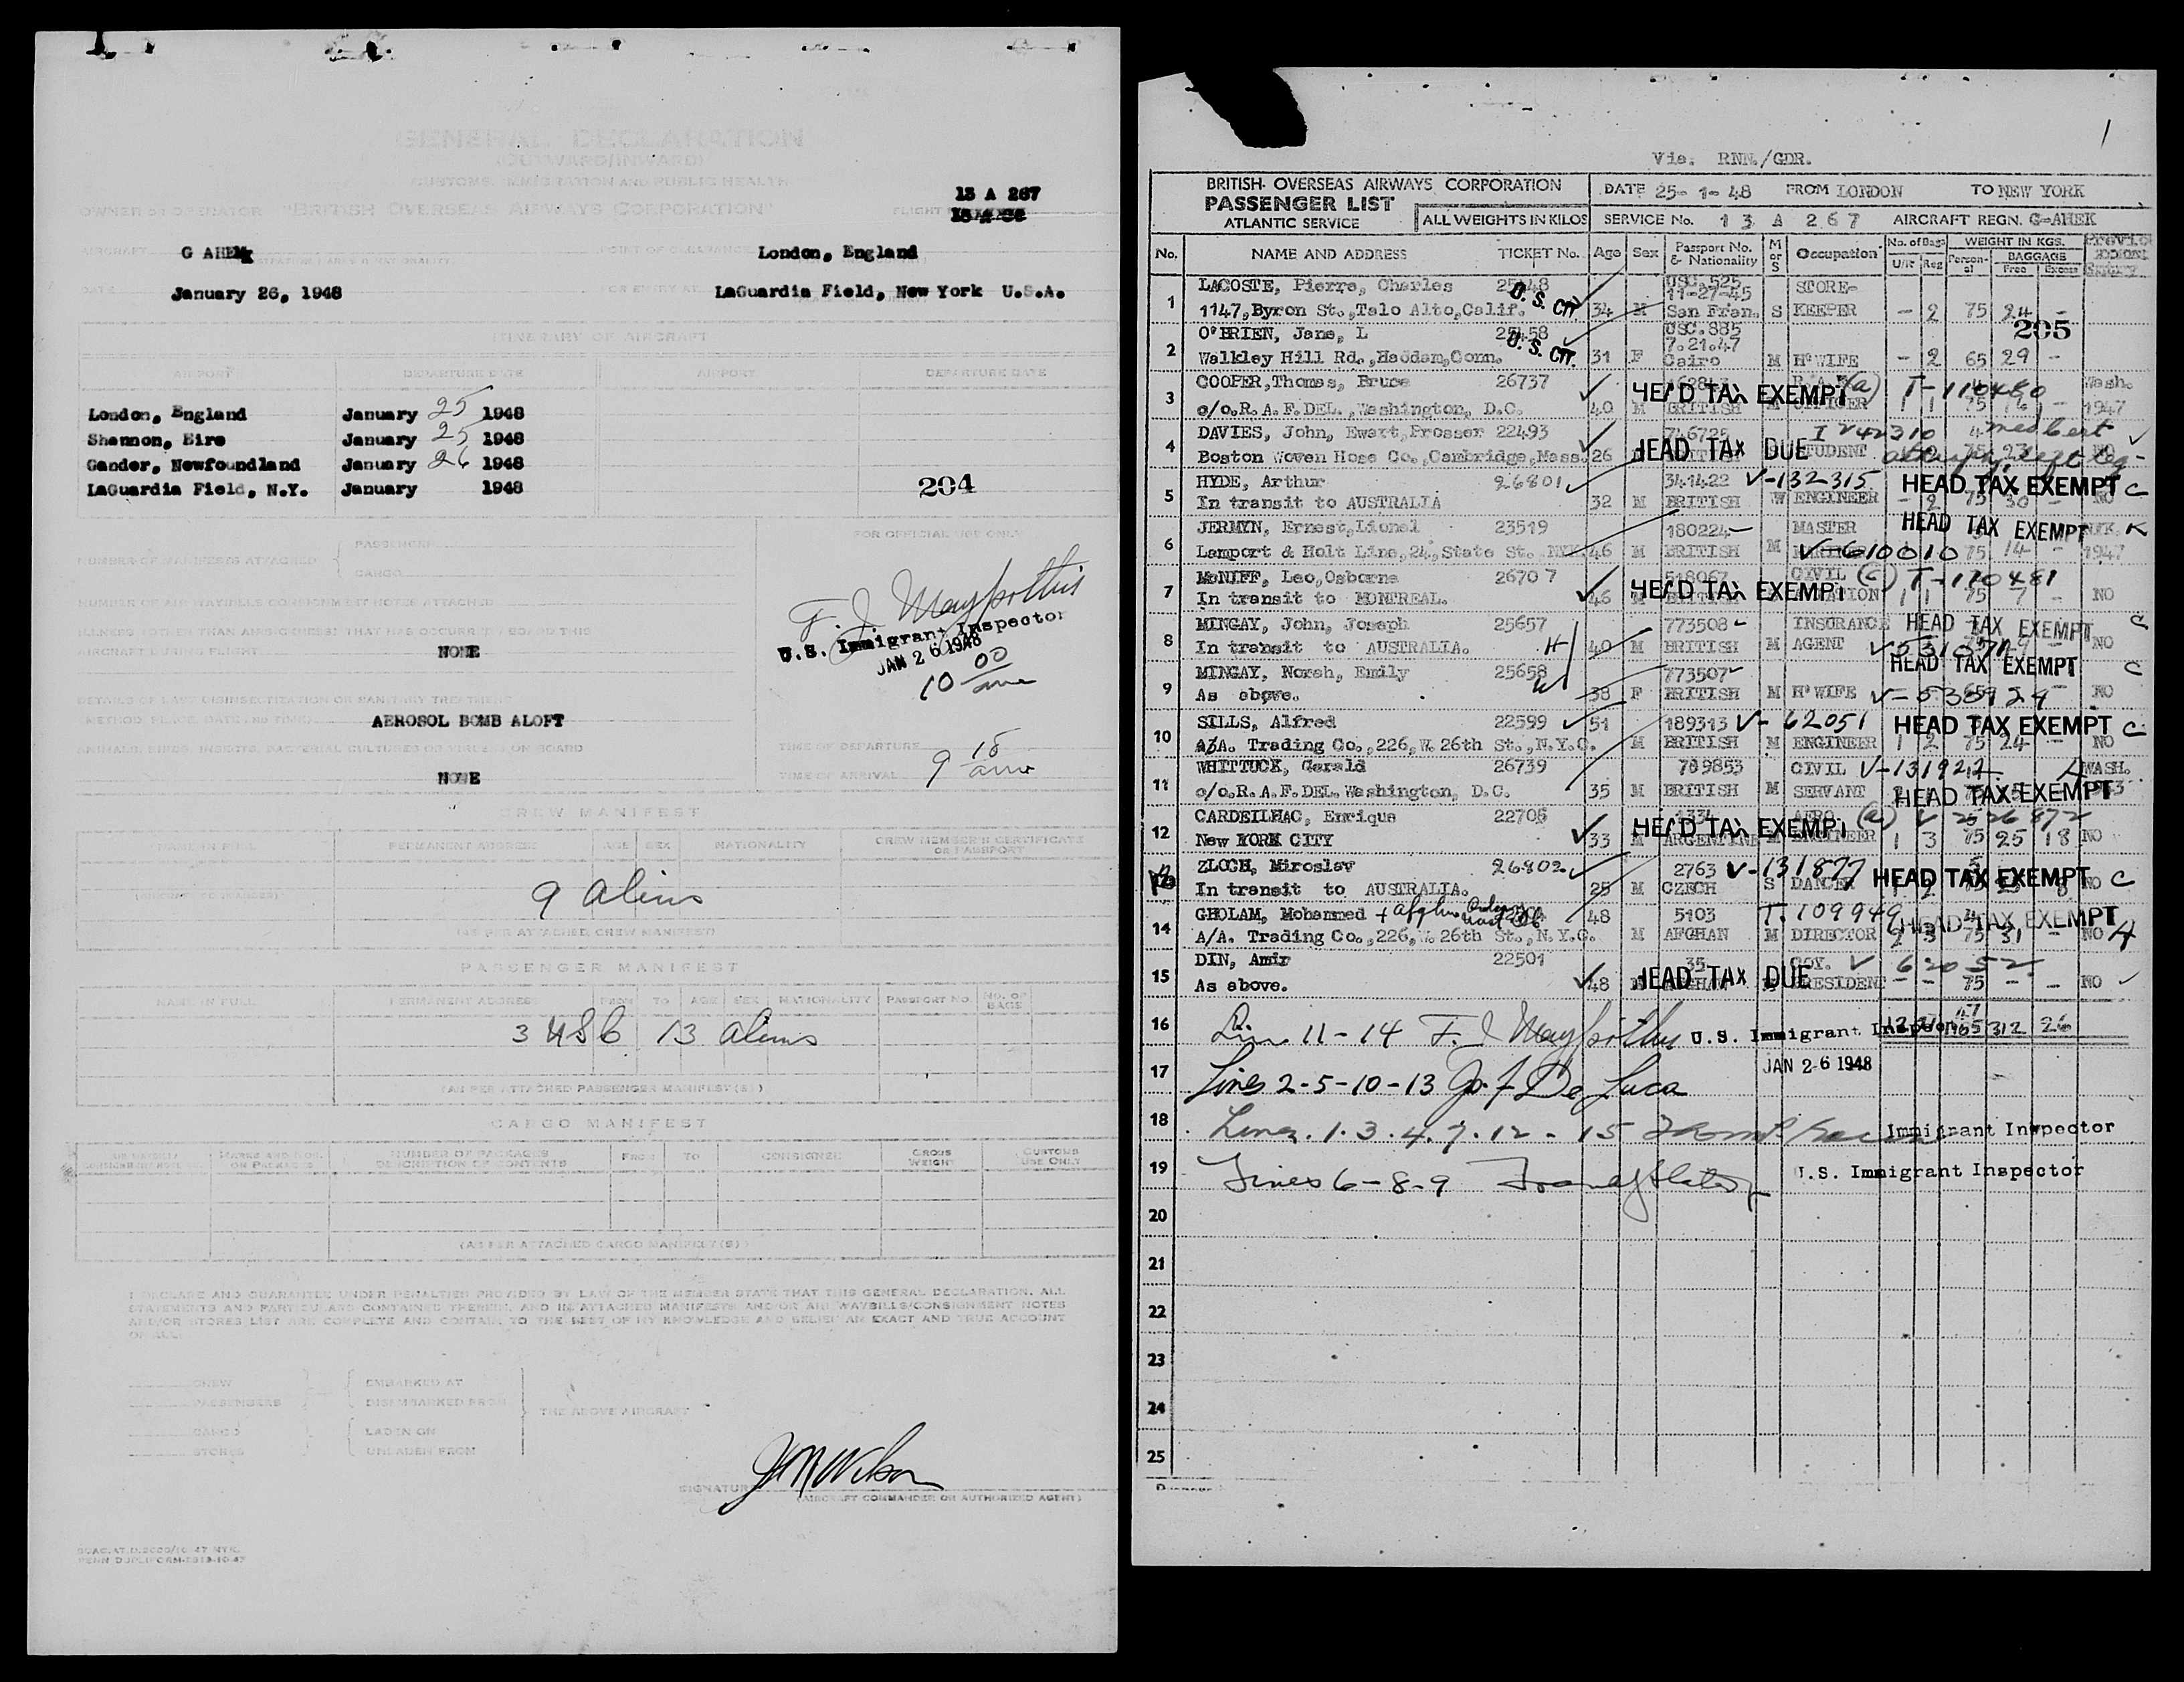 GENERAL DECLARATION
(OUTWARD/INWARD)
CUSTOMS, IMMIGRATION AND PUBLIC HEALTH
13 A 267
OWNER OR OPERATOR "BRITISH OVERSEAS AIRWAYS CORPORATION" FLIGHT
AIRCRAFT G AHEK POINT OF CLEARANCE London, England
DATE January 26, 1948 FOR ENTRY AT LaGuardia Field, New York U.S.A.
ITINERARY OF AIRCRAFT
AIRPORT DEPARTURE DATE AIRPORT DEPARTURE DATE
London, England January 25 1948
Shannon, Eire January 25 1948
Gander, Newfoundland January 26 1948
LaGuardia Field, N.Y. January 1948
204
FOR OFFICIAL USE ONLY
NUMBER OF MANIFESTS ATTACHED PASSENGER
CARGO
NUMBER OF AIR WAYBILLS CONSIGNMENT NOTES ATTACHED
ILLNESS (OTHER THAN AIRSICKNESS) THAT HAS OCCURRED ON BOARD THIS
AIRCRAFT DURING FLIGHT
NONE
U.S. Immigrant Inspector
JAN 26 1948
10 00 am
DETAILS OF LAST DISINSECTIZATION OR SANITARY TREATMENT
METHOD, PLACE, DATE AND TIME
AEROSOL BOMB ALOFT
ANIMALS, BIRDS, INSECTS, BACTERIAL CULTURES OR VIRUSES ON BOARD
NONE
TIME OF DEPARTURE
TIME OF ARRIVAL 9 15 am
CREW MANIFEST
NAME IN FULL PERMANENT ADDRESS AGE SEX NATIONALITY CREW MEMBER'S CERTIFICATE OR PASSPORT
9 aliens
(AS PER ATTACHED CREW MANIFEST)
PASSENGER MANIFEST
NAME IN FULL PERMANENT ADDRESS FROM TO AGE SEX NATIONALITY PASSPORT No. NO. OF BAGS
13 aliens
(AS PER ATTACHED PASSENGER MANIFEST(S))
CARGO MANIFEST
NUMBER OF PACKAGES DESCRIPTION OF CONTENTS FROM TO CONSIGNEE GROSS WEIGHT CUSTOMS USE ONLY
(AS PER ATTACHED CARGO MANIFEST(S))
I DECLARE AND GUARANTEE UNDER PENALTIES PROVIDED BY LAW OF THE MEMBER STATE THAT THIS GENERAL DECLARATION, ALL
STATEMENTS AND PARTICULARS CONTAINED THEREIN, AND IN ATTACHED MANIFESTS AND/OR AIR WAYBILLS/CONSIGNMENT NOTES
AND/OR STORES LIST ARE COMPLETE AND CONTAIN TO THE BEST OF MY KNOWLEDGE AND BELIEF AN EXACT AND TRUE ACCOUNT
OF ALL:
CREW EMBARKED AT
PASSENGERS DISEMBARKED FROM
THE ABOVE AIRCRAFT
CARGO LADEN ON
STORES UNLADEN FROM
SIGNATURE
(AIRCRAFT COMMANDER OR AUTHORIZED AGENT)
1
Via. RNN./GDR.
BRITISH OVERSEAS AIRWAYS CORPORATION DATE 25-1-48 FROM LONDON TO NEW YORK
PASSENGER LIST
ATLANTIC SERVICE ALL WEIGHTS IN KILOS SERVICE No. 13 A 267 AIRCRAFT REGN. G-AHEK
No. NAME AND ADDRESS TICKET No. Age Sex Passport No. & Nationality M or S Occupation No. of Bags U/K Reg WEIGHT IN KGS. Personal BAGGAGE Free Excess
1 LACOSTE, Pierre, Charles 25448 USC.525 11-27-45 STORE-
1147, Byron St., Talo Alto, Calif. U.S. CIT. 34 M San Fran. S KEEPER - 2 75 24 -
205
2 O'BRIEN, Jane, L 25458 USC.885 7.21.47
Walkley Hill Rd., Haddam, Conn. U.S. CIT. 31 F Cairo M H'WIFE - 2 65 29 -
3 COOPER, Thomas, Bruce 26737 HEAD TAX EXEMPT (a) T-110480 Wash.
c/o. R.A.F. DEL., Washington, D.C. 40 M BRITISH M OFFICER 1 1 75 1947
4 DAVIES, John, Ewart, Prosser 22493 746725 I V42310 med cert
Boston Woven Hose Co., Cambridge, Mass. 26 HEAD TAX DUE STUDENT
5 HYDE, Arthur 26801 341422 V-132315 HEAD TAX EXEMPT C
In transit to AUSTRALIA 32 M BRITISH W ENGINEER - 2 75 30 - NO
6 JERMYN, Ernest, Lionel 23519 180224 MASTER HEAD TAX EXEMPT
Lamport & Holt Line, 24, State St. NYK 46 M BRITISH M V-610010 75 14 - 1947
7 McNIFF, Leo, Osborne 26707 HEAD TAX EXEMPT CIVIL (C) T-110481
In transit to MONTREAL. 46 M BRITISH 1 1 75 7 - NO
8 MINGAY, John, Joseph 25657 773508 INSURANCE HEAD TAX EXEMPT C
In transit to AUSTRALIA. H 40 M BRITISH M AGENT NO
9 MINGAY, Norah, Emily 25658 773507 HEAD TAX EXEMPT C
As above. W 38 F BRITISH M H'WIFE NO
10 SILLS, Alfred 22599 51 189313 V-62051 HEAD TAX EXEMPT C
A/A. Trading Co., 226, W. 26th St., N.Y.C. M BRITISH M ENGINEER 1 2 75 24 - NO
11 WHITTUCK, Gerald 26739 709853 CIVIL V-131922 A WASH.
c/o. R.A.F. DEL. Washington, D.C. 35 M BRITISH M SERVANT HEAD TAX EXEMPT
12 CARDEILHAC, Enrique 22705 HEAD TAX EXEMPT AERO (a) V 2526872
New YORK CITY 33 M ARGENTINE M ENGINEER 1 3 75 25 18 NO
13 ZLOCH, Miroslav 26802 2763 V-131877 HEAD TAX EXEMPT C
In transit to AUSTRALIA. 25 M CZECH S DANCER NO
14 GHOLAM, Mohammed 48 5103 T.109949 HEAD TAX EXEMPT
A/A. Trading Co., 226, W. 26th St., N.Y.C. M AFGHAN M DIRECTOR 2 3 75 31 - NO A
15 DIN, Amir 22501 35 GOV. V 62052
As above. 48 HEAD TAX DUE PRESIDENT - - 75 - - NO
16 Lines 11-14 U.S. Immigrant Inspector 312 26
17 Lines 2-5-10-13 De Luca JAN 26 1948
18 Lines. 1.3.4.7.12-15 Immigrant Inspector
19 Lines 6-8-9 U.S. Immigrant Inspector
20
21
22
23
24
25